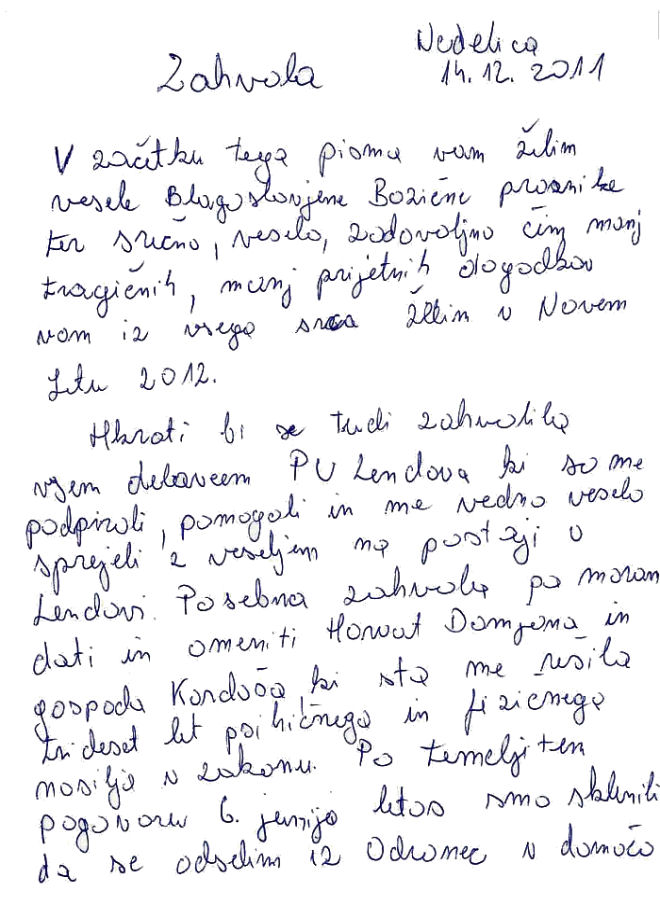 Nedelica
14.12. 2011
Zahvala
V začetku tega pisma vam želim
vesele Blagoslovjene Božične praznike
ter srečno, veselo, zadovoljno čim manj
tragičnih, manj prijetnih dogodkov
vam iz vsega srca želim v Novem
Letu 2012.
Hkrati bi se tudi zahvalila
vsem delavcem PU Lendava ki so me
podpirali, pomagali in me vedno veselo
sprejeli z veseljem na postaji v
Lendavi. Posebna zahvala pa moram
dati in omeniti Horvat Damjana in
gospoda Kardoša, ki sta me rešila
trideset let psihičnega in fizičnega
nasilja v zakonu. Po temeljitem
pogovoru 6. junija letos smo sklenili
da se odselim iz Odranec v domačo